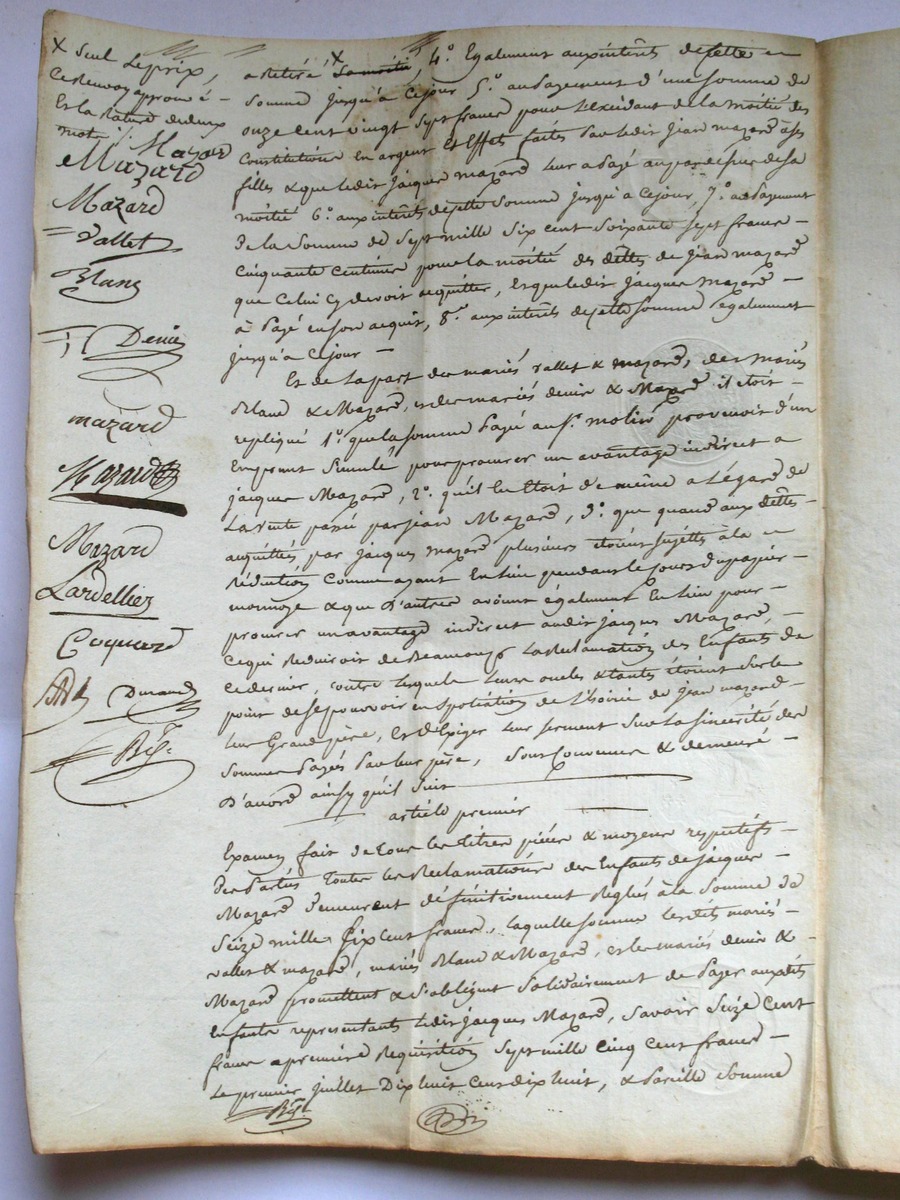 X Seul Le prix,
Ce Renvoy approuvé
Est la Rature de deux
mots /.
Mazard
Mazard
Mazard
Vallet
Blanc
Denis
mazard
Mazard
Mazard
Lardellier
Coquard
Durand
a Retiré X La moitié 4.° Egalement aux intérêts de cette
Somme jusqu'à Cejour 5.° au payement d'une Somme de
onze cent vingt Sept francs pour L'excédant de la moitié des
Constitutions En argent Et Effets faites Par ledit Jean mazard à ses
filles & que ledit Jacques mazard leur a Payé au par dessus de sa
moitié 6.° aux intérêts de cette Somme jusqu'à Cejour, 7.° au Payement
de la Somme de Sept mille Six cent Soixante Sept francs
Cinquante Centimes pour la moitié des dettes de Jean mazard
que Celui Cy devoit acquitter, Et que ledit Jacques Mazard
à Payé en son acquit, 8.° aux intérêts de cette Somme Egalement
jusqu'à Cejour
Et de la part des mariés Vallet & mazard, des mariés
Blanc & Mazard, et des mariés denis & Mazard il étoit
repliqué 1.° que la somme Payé au S.r molin provenoit d'un
Emprunt Simulé pour procurer un avantage indirect a
Jacques Mazard, 2.° qu'il En étoit de même a L'égard de
La vente passée par Jean Mazard, 3.° que quand aux dettes
acquittées par Jacques mazard plusieurs étoient Sujettes à la
Réduction Comme ayant En lieu pendant le Cours du papier
monnoye & que D'autres avoient également En lieu pour
procurer un avantage indirect audit Jacques Mazard,
Ce qui Reduiroit de Beaucoup la Reclamation des Enfants de
Ce dernier, Contre lesquels Leurs oncles & tantes étoient Sur le
point de se pourvoir en Spoliation de L'hoirie de Jean mazard
Leur Grand père, Et d'Exiger Leur Serment Sur la Sincérité des
Sommes Payées Par leur père, Sont Convenus & demeuré
D'accord ainsy qu'il Suit
article premier
Examen fait de tous les titres pièces & moyens respectifs
des Parties toutes les Reclamations des Enfants de Jacques
Mazard demeurent définitivement Reglées à la Somme de
Seize mille Six Cent francs, laquelle Somme lesdits mariés
Vallet & mazard, mariés Blanc & Mazard, et les mariés denis &
Mazard promettent & S'obligent Solidairement de Payer auxdits
Enfants représentants ledit Jacques Mazard, Savoir Seize Cent
francs a première Réquisition Sept mille Cinq Cent francs
Le premier juillet Dix huit Cent dix huit, & Pareille Somme